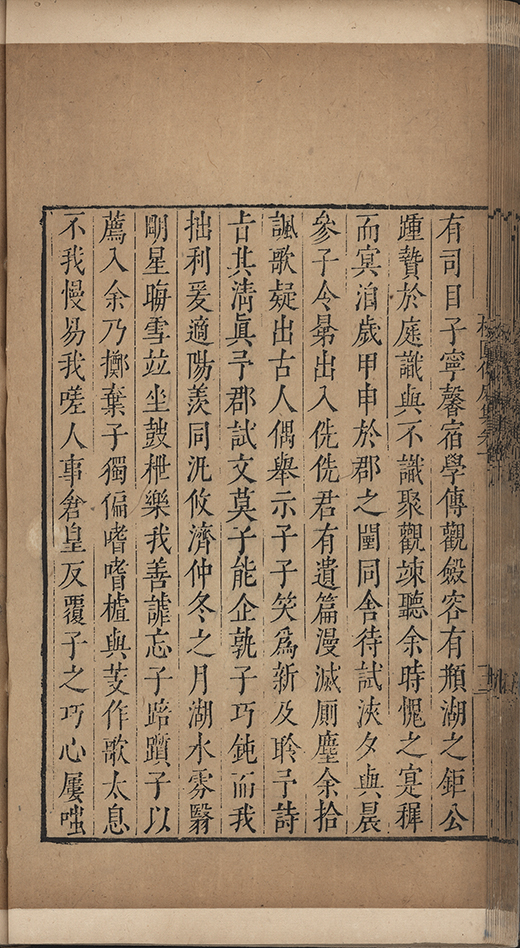 有司目子寧馨宿學傳觀毀容有頫湖之鉅公
踵贄於庭識與不識聚觀竦聽余時愧之寔穉
而寞洎歲甲申於郡之闉同舍待試浹夕與晨
參子令晜出入侁侁君有遺篇漫滅廁塵余拾
諷歌疑出古人偶舉示子子笑爲新及聆予詩
旨其淸眞予郡試文莫子能企孰子巧鈍而我
拙利爰適陽羨同汎攸濟仲冬之月湖水雰翳
朙星聨雪竝坐鼓枻樂我善謔忘子踣躓子以
薦入余乃擲棄子獨偏嗜嗜樝與芰作歌太息
不我慢易我嗟人事倉皇反覆子之巧心屢嗤